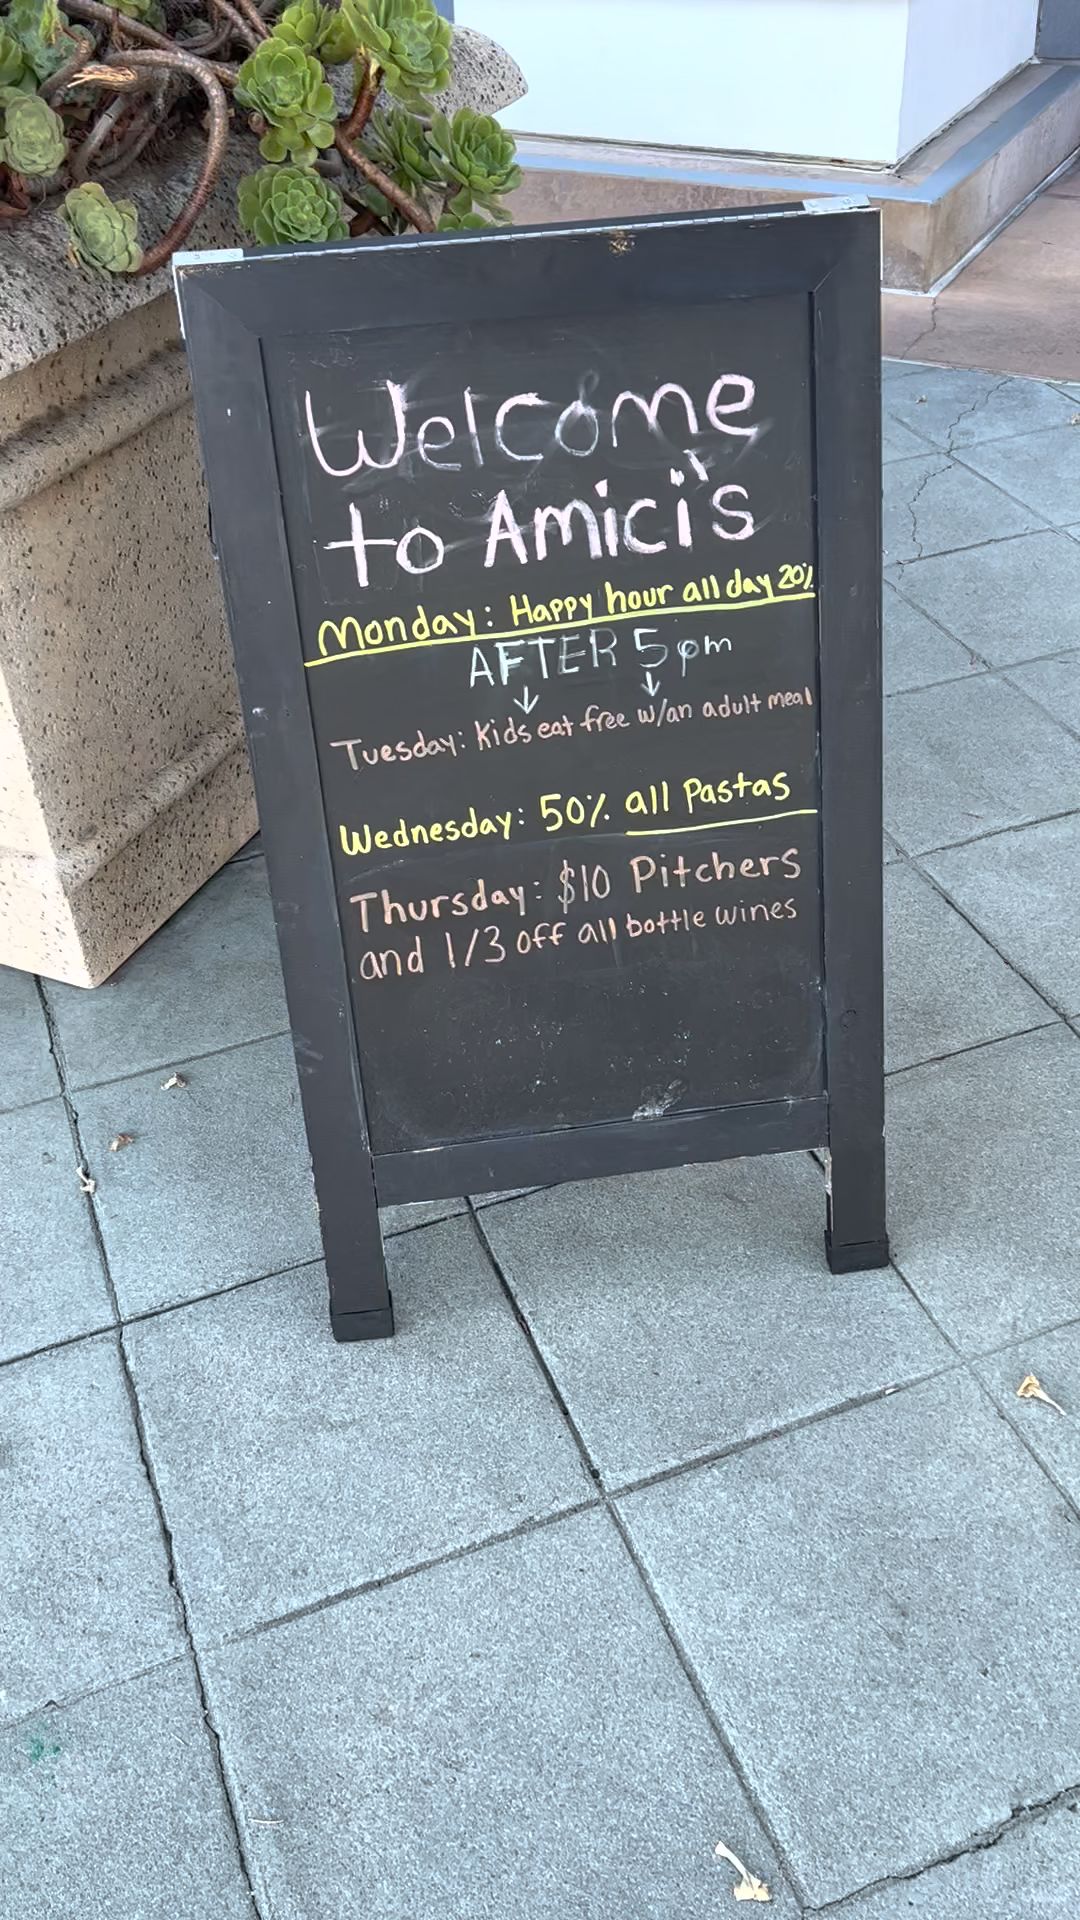 Welcome
to Amici's
Monday: Happy hour all day 20%
AFTER 5pm
↓ ↓
Tuesday: Kids eat free w/an adult meal
Wednesday: 50% all Pastas
Thursday: $10 Pitchers
and 1/3 off all bottle wines